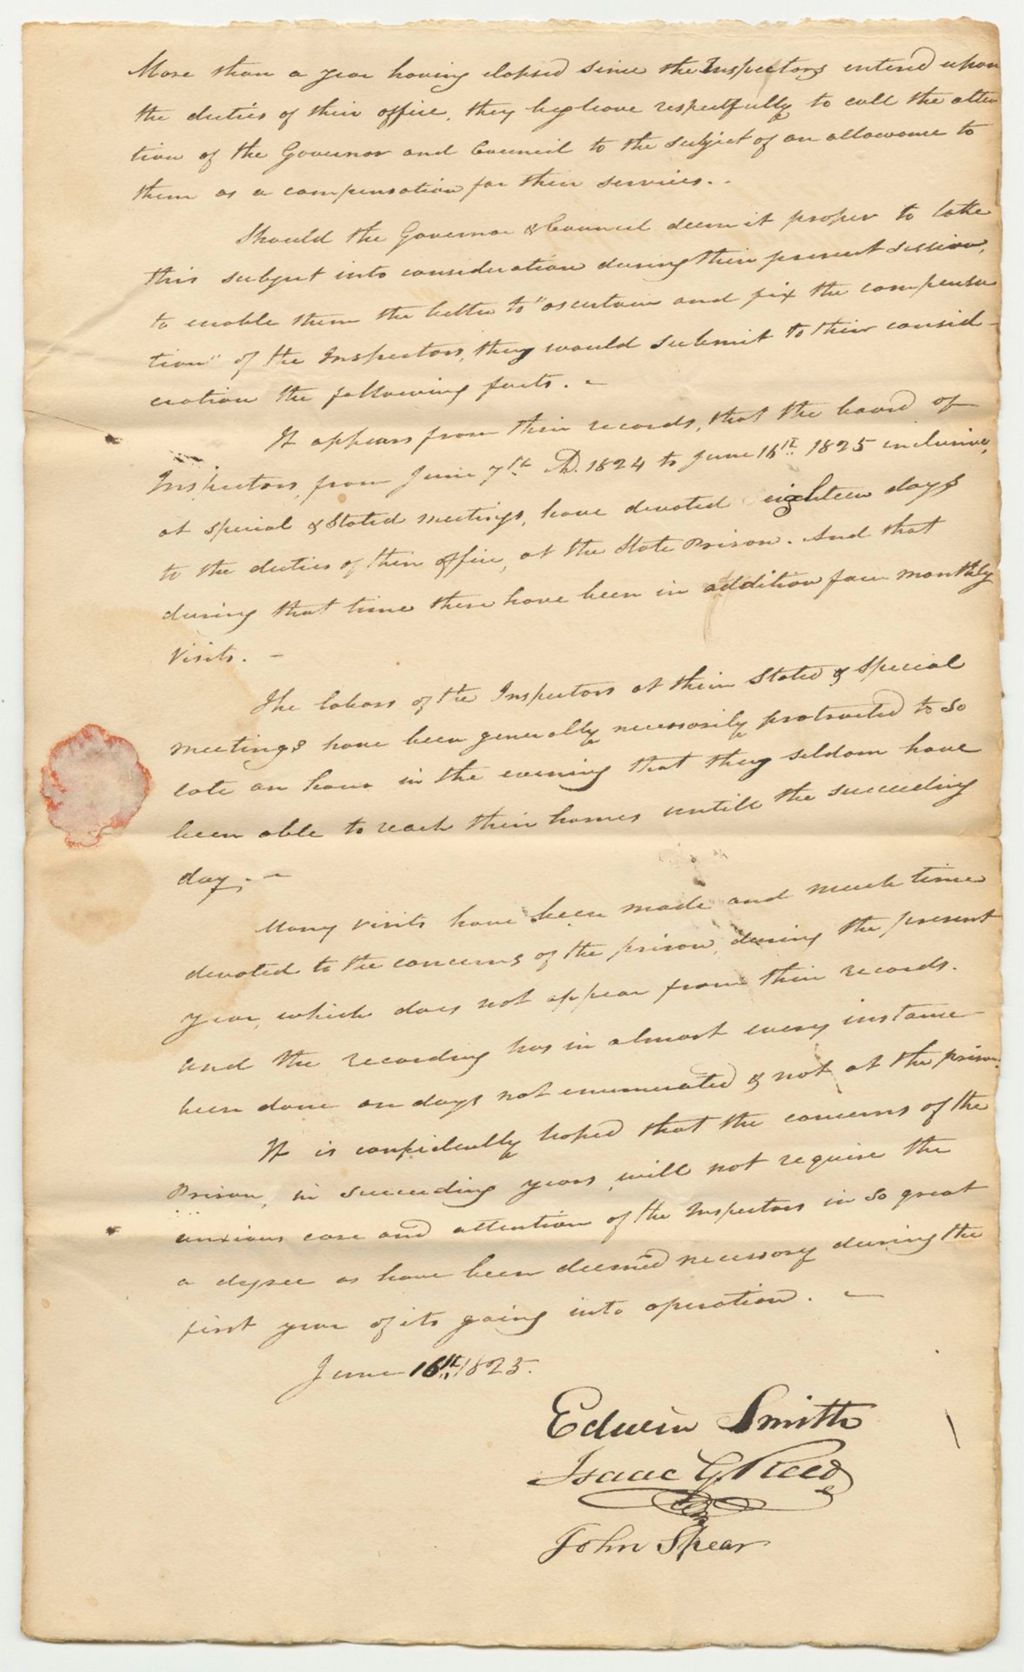 More than a year having elapsed since the Inspectors entered upon
the duties of their office, they beg leave respectfully to call the atten
tion of the Governor and Council to the subject of an allowance to
them as a compensation for their services. -
Should the Governor & Council deem it proper to take
this subject into consideration during their present session,
to enable them the better to "ascertain and fix the compensa
tion" of the Inspectors, they would submit to their consid-
eration the following facts. -
It appears from their records, that the board of
Inspectors, from June 7th AD. 1824 to June 16th 1825 inclusive,
at special & Stated meetings, have devoted eighteen days
to the duties of their office, at the State Prison. And that
during that time there have been in addition four monthly
visits. -
The labors of the Inspectors at their Stated & Special
meetings have been generally necessarily protracted to so
late an hour in the evening that they seldom have
been able to reach their homes untill the succeeding
day. -
Many visits have been made and much time
devoted to the concerns of the prison, during the present
year, which does not appear from their records.
And the recording has in almost every instance
been done on days not enumerated & not at the prison.
It is confidently hoped that the concerns of the
Prison, in succeeding years, will not require the
anxious care and attention of the Inspectors in so great
a degree as have been deemed necessary during the
first year of its going into operation. -
June 16th 1825.
Edwin Smith
Isaac G Reed
John Spear